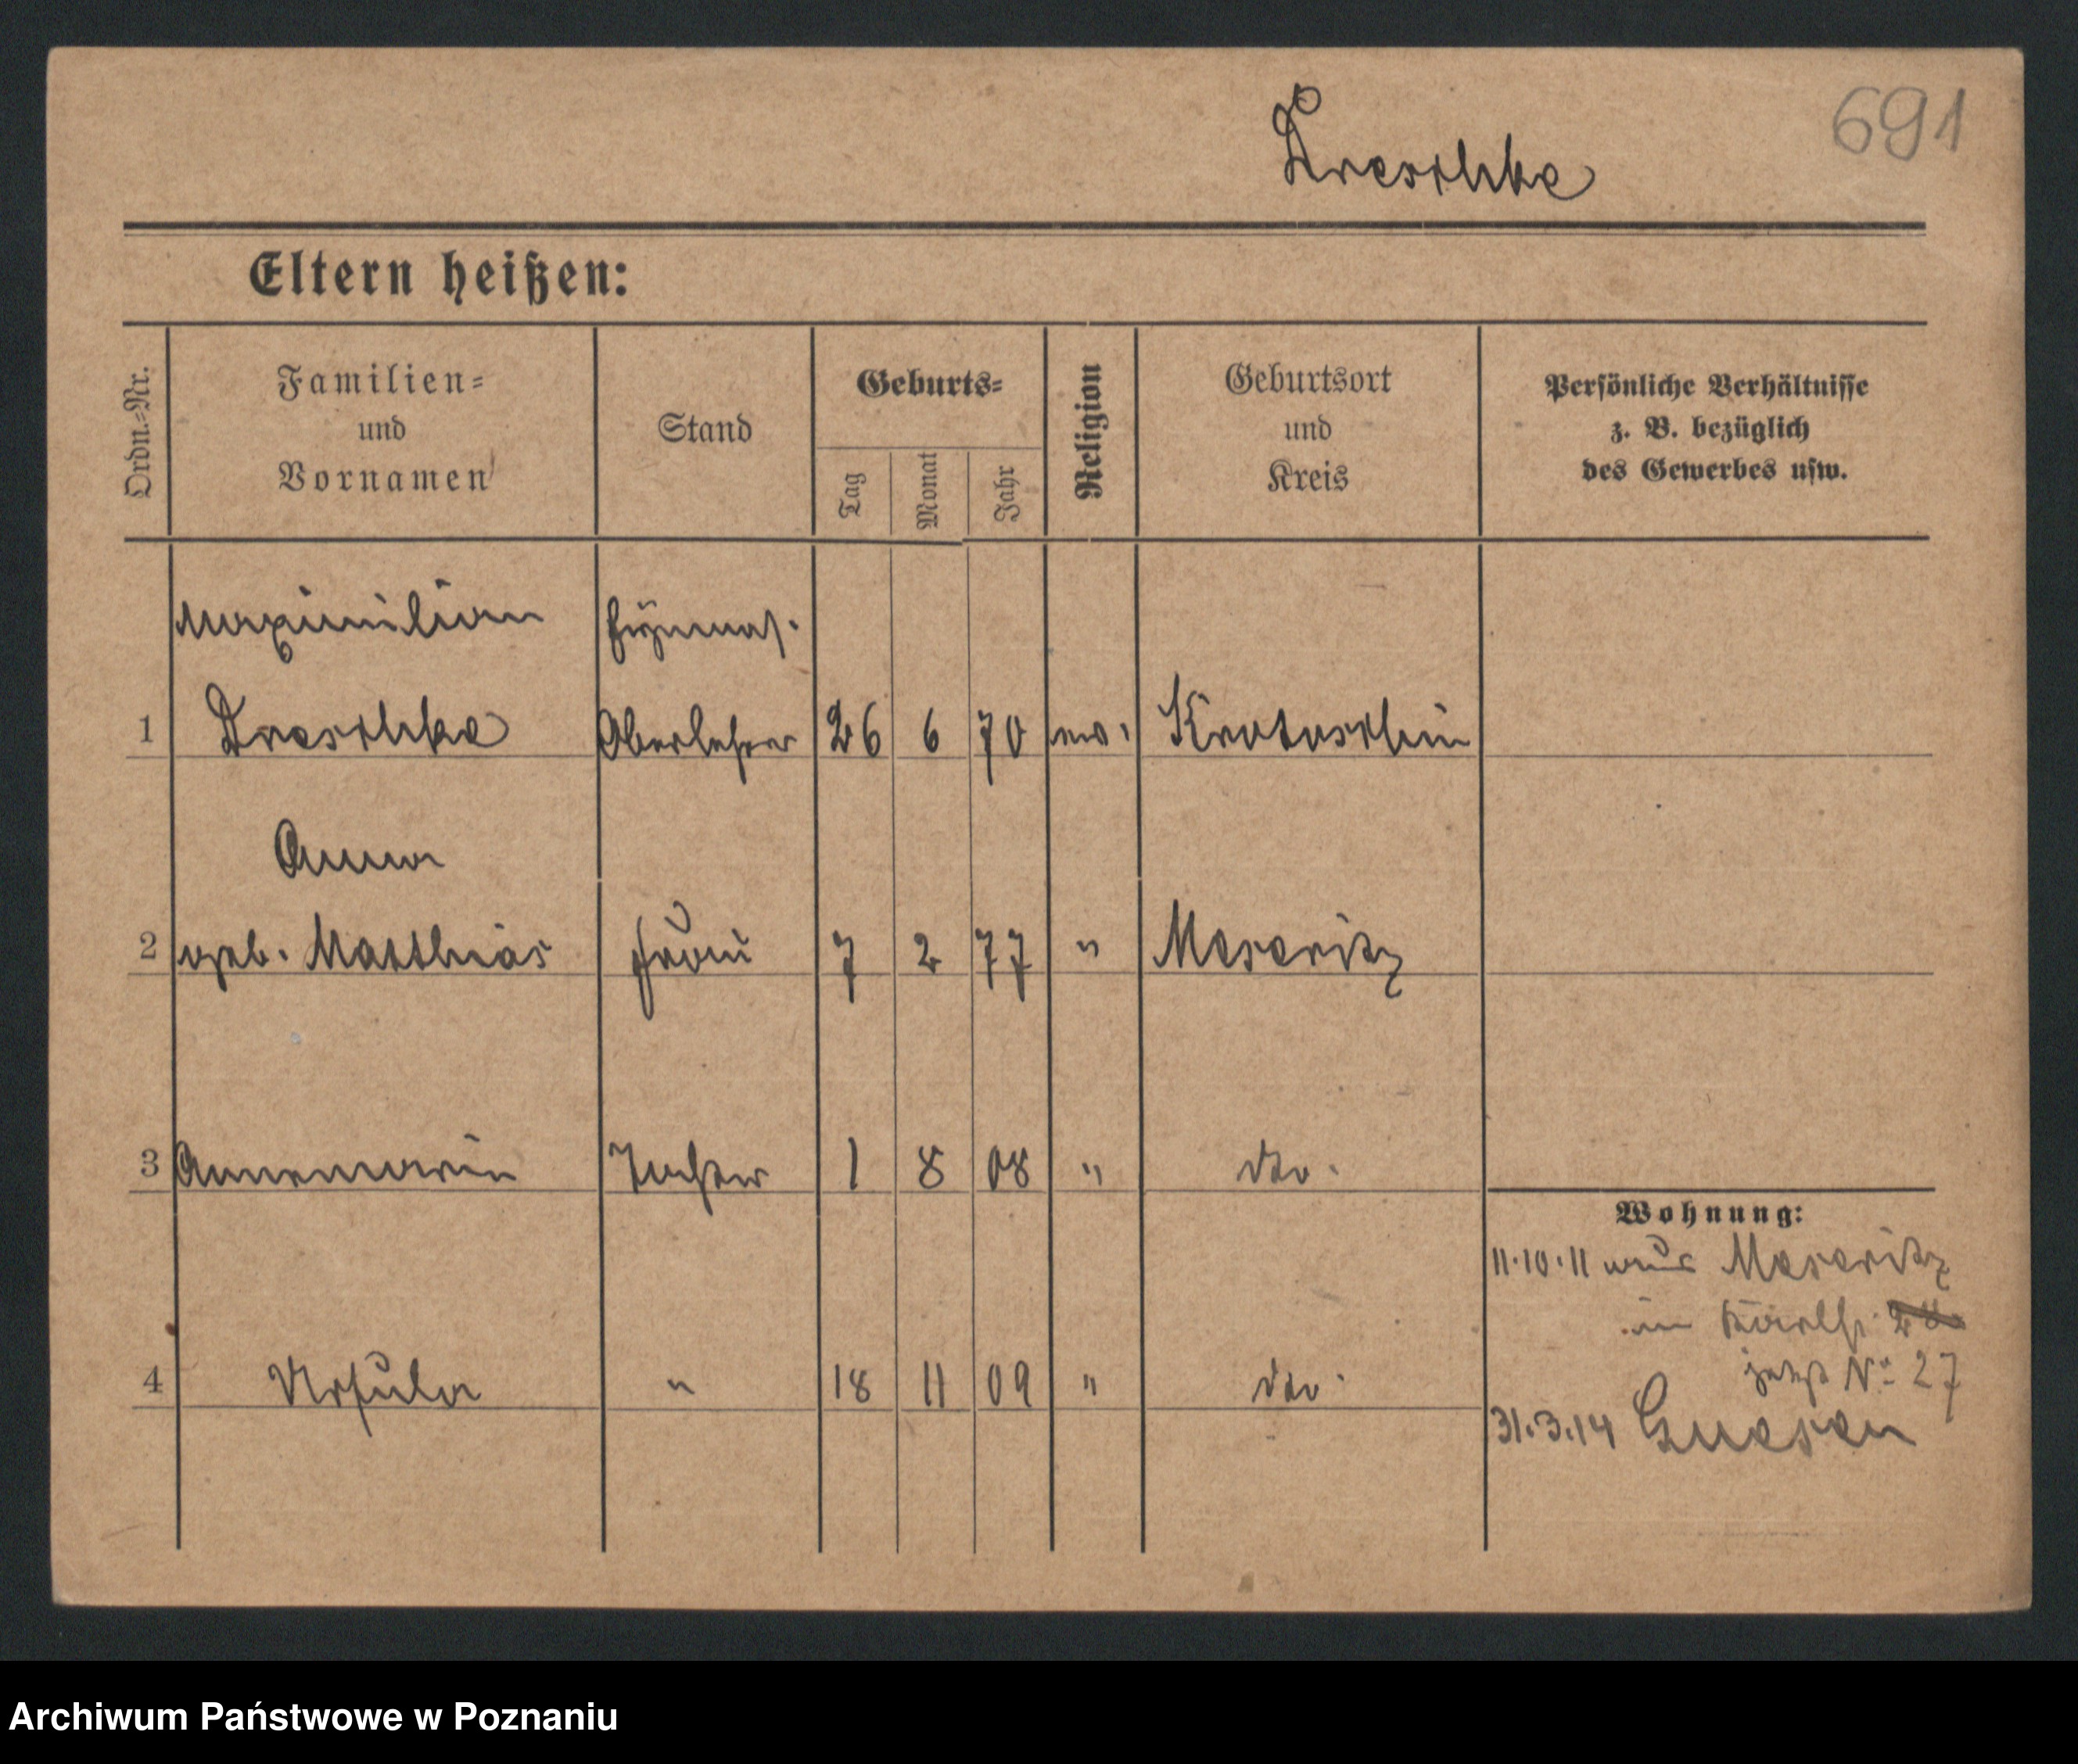 691
Dreschke
Eltern heißen:
Ordn.=Nr.
Familien=
und
Vornamen
Stand
Geburts=
Tag
Monat
Jahr
Religion
Geburtsort
und
Kreis
Persönliche Verhältnisse
z. B. bezüglich
des Gewerbes usw.
Maximilian Gymnas.
1 Dreschke Oberlehrer 26 6 70 ev. Krotoschin
Anna
2 geb. Matthias Frau 7 2 77 " Meseritz
3 Annemarie Tochter 1 8 08 " dto.
Wohnung:
11.10.11 aus Meseritz
in
jetzt No 27
4 Ursula " 18 11 09 " dto.
31.3.14 Gnesen
Archiwum Państwowe w Poznaniu